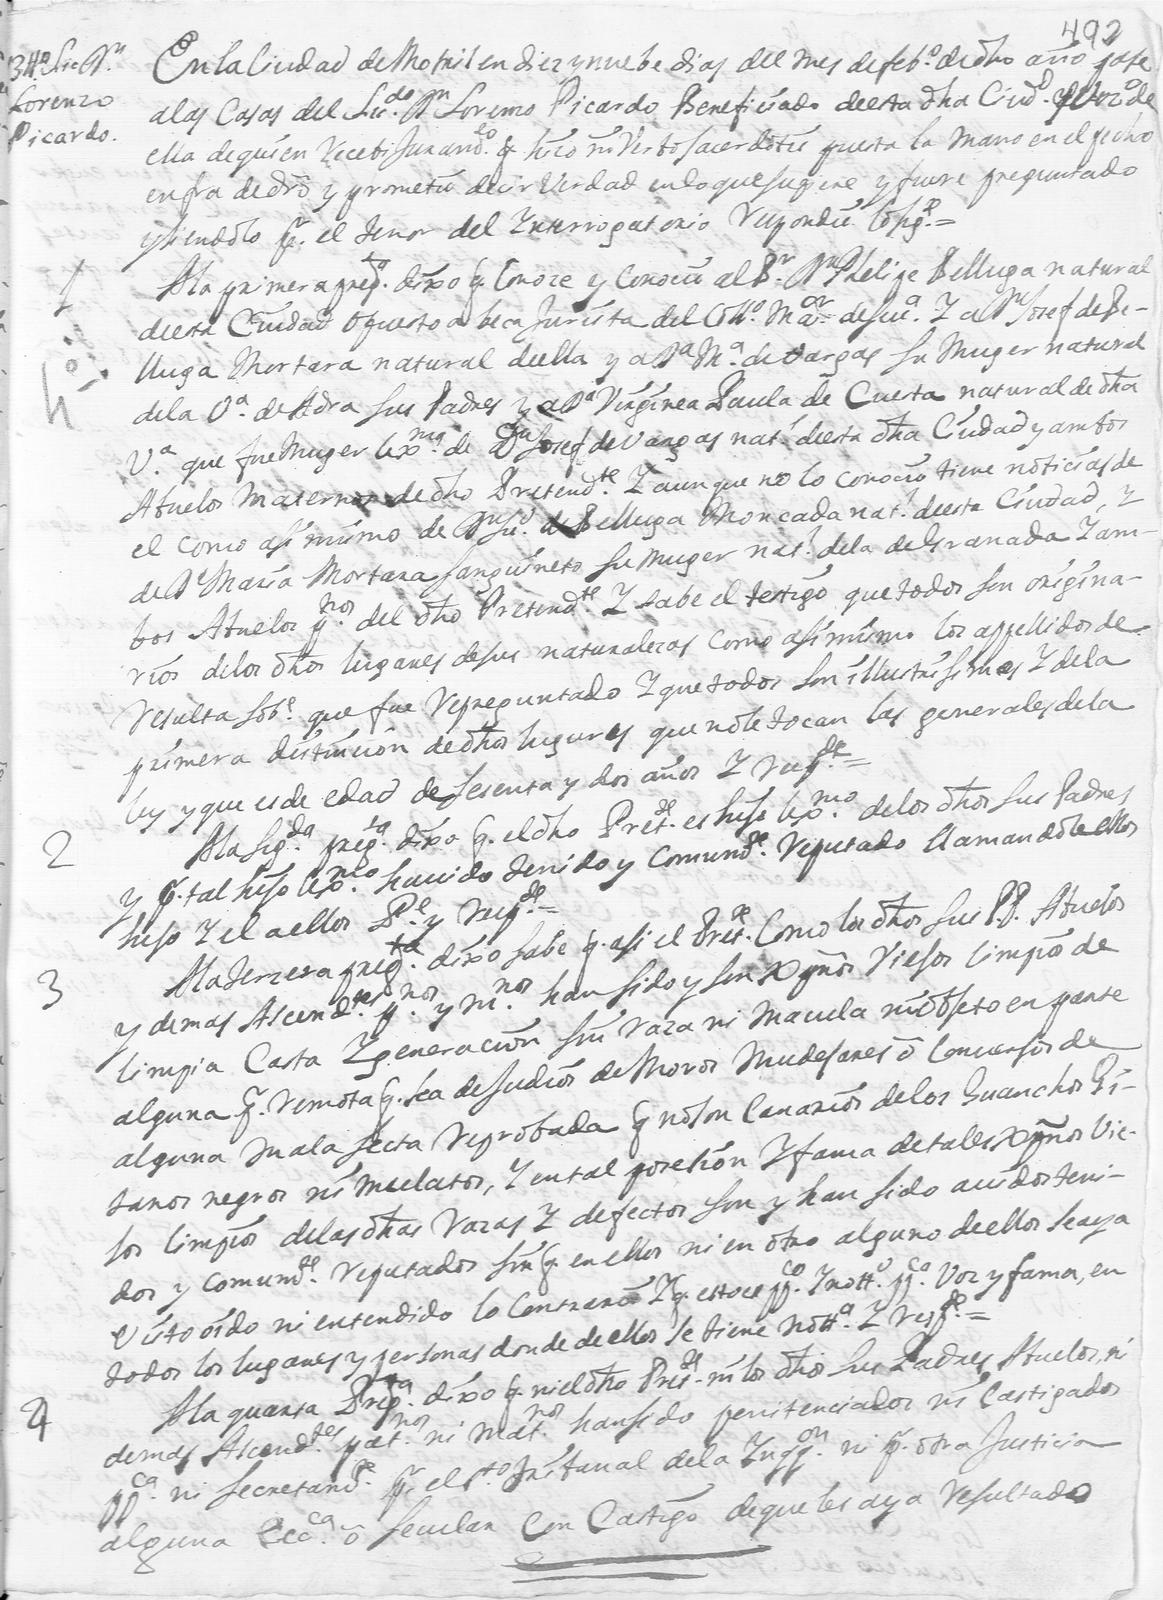 492
34º. Lic. Dn.
Lorenzo
Picardo.
En la Ciudad de Motril en diez y nuebe dias del mes de febº. de dho año pase
a las Casas del Licdo. Dn. Lorenzo Picardo Beneficiado de esta dha Ciud. y Vezº. de
ella de quien recebi Juramdo. q. hizo in Verbo Sacerdotis puesta la mano en el pecho
en fra de dro y prometio decir Verdad en lo que supiere y fuere preguntado
y siendolo pr. el tenor del Interrogatorio respondio lo sigte.=
1
A la primera pregta. dixo q. Conoze y conocio al Br. Dn. Phelipe Belluga natural
de esta Ciudad opuesto a beca Jurista del Collº. Maor. de Cuca. Y a Dn. Josef de Be-
lluga Mortara natural de ella y a Da. Ma. de Vargas su Muger natural
de la Va. de Adra sus Padres y a Da. Virginea Paula de Cuerta natural de dha
Va. que fue Muger lexma. de Dn. Josef de Vargas natl. de esta dha Ciudad y ambos
Abuelos maternos de dho Pretendte. Y aunque no lo conocio tiene noticias de
el como asi mismo de Dn. de Belluga Moncada natl. de esta Ciudad, Y
de Da. Maria Mortara Sanguineto su Muger natl. de la de Granada Y am-
bos Abuelos pnos. del dho Pretendte. Y sabe el testigo que todos son origina-
rios de los dhos lugares de sus naturalezas como asi mismo los appellidos de
resulta sobe. que fue repreguntado Y que todos son illustrisimos Y de la
primera distincion de dhos lugares que no le tocan las generales de la
ley y que es de edad de sesenta y dos años Y respde.=
2
A la sigda. pregta. dixo q. el dho Prete. es hijo lexmo. de los dhos sus Padres
y p. tal hijo lexmo. havido tenido y comunde. reputado llamandole ellos
hijo Y el a ellos Pe. y respde.=
3
A la terzera pregta. dixo sabe q. asi el Prete. Como los dhos sus PP. Abuelos
y demas Ascendtes. pnos. y mnos. han sido y son Xpños Viejos limpios de
limpia Casta Y generacion sin raza ni macula ni objeto en parte
alguna pr. remota q. sea de Judios de Moros Mudejares o Conversos de
alguna mala secta reprobada q no son Canarios de los Guanchos Gi-
tanos negros ni mulatos, Y en tal posesion Y fama de tales Xpños Vie-
jos limpios de las dhas razas Y defectos son y han sido avidos teni-
dos y comunde. reputados sin q. en ellos ni en otro alguno de ellos se aya
visto oido ni entendido lo contrario Y q. esto es ppco. Y nottº. ppca. voz y fama, en
todos los lugares y personas donde de ellos se tiene notta. Y respde.=
4
A la quarta Pregta. dixo q. ni el dho Prete. ni los dhos sus Padres Abuelos, ni
demas Ascendtes. patnos. ni matnos. han sido penitenciados ni Castigados
ppca. ni secretamde. pr. el Sto. Tribunal de la Inqqon. ni pr. otra Justicia
alguna Eccca. o secular con Castigo de que les aya resultado